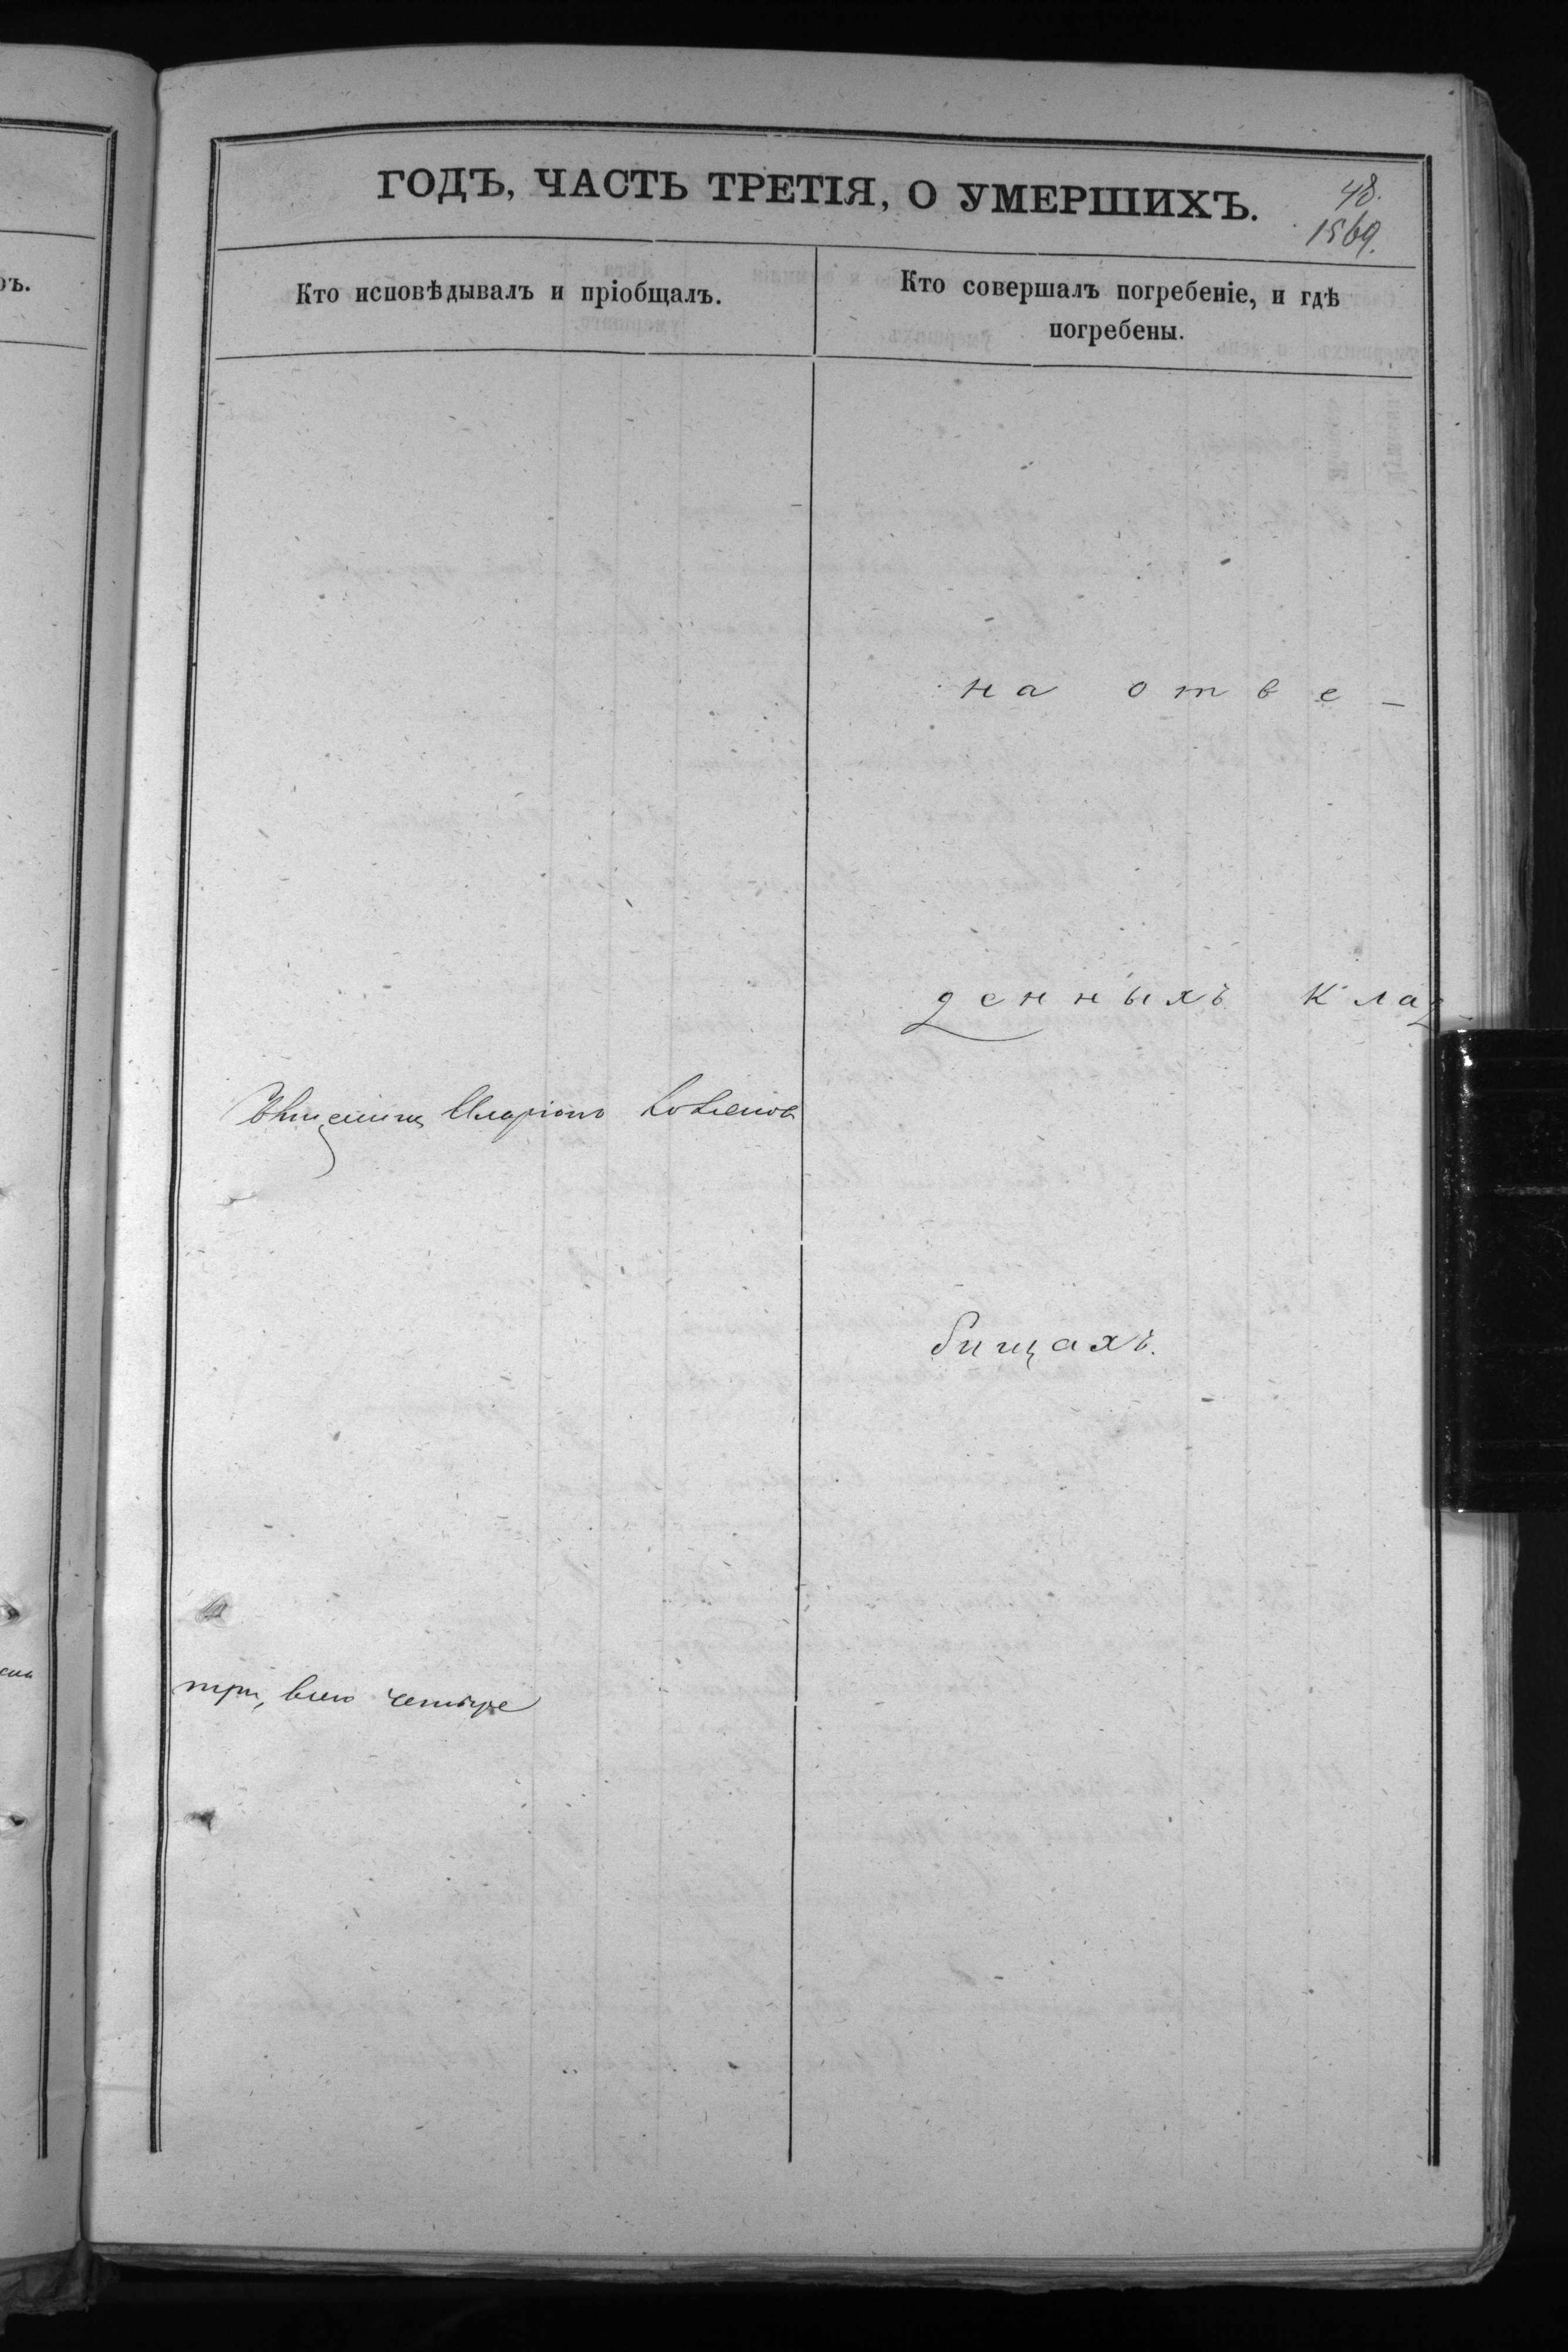 ГОДЪ, ЧАСТЬ ТРЕТІЯ, О УМЕРШИХЪ.
48.
1569.
Кто исповѣдывалъ и пріобщалъ.
Кто совершалъ погребеніе, и гдѣ
погребены.
на отве-
денныхъ клад
Священникъ Иларіонъ
бищахъ.
три, всего четыре